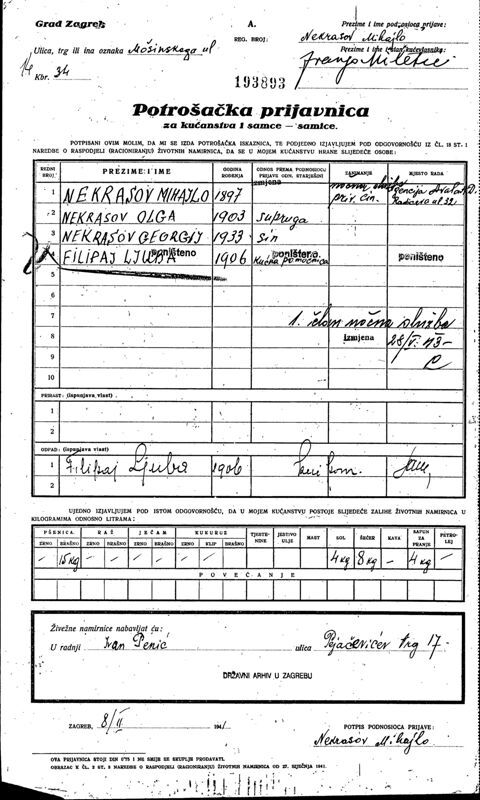 Grad Zagreb
A.
REG. BROJ:
Prezime i ime podnosioca prijave:
Nekrasov Mihajlo
Ulica, trg ili ina oznaka Mošinskoga ul
Prezime i ime
Franjo Miletić
Kbr. 34
193893
Potrošačka prijavnica
za kućanstva i samce — samice.
POTPISANI OVIM MOLIM, DA MI SE IZDA POTROŠAČKA ISKAZNICA, TE PODJEDNO IZJAVLJUJEM POD ODGOVORNOŠĆU IZ ČL. 18 ST. 1
NAREDBE O RASPODJELI (RACIONIRANJU) ŽIVOTNIH NAMIRNICA, DA SE U MOJEM KUĆANSTVU HRANE SLIJEDEĆE OSOBE:
REDNI BROJ PREZIME I IME GODINA ROĐENJA ODNOS PREMA PODNOSIOCU PRIJAVE ODN. STARJEŠINI ZANIMANJE MJESTO RADA
1 NEKRASOV MIHAJLO 1897 izmjena priv. čin.
2 NEKRASOV OLGA 1903 supruga
3 NEKRASOV GEORGIJ 1933 sin
4 FILIPAJ LJUBA poništeno 1906 kućna pomoćnica poništeno poništeno
5
6
7 1. član noćna služba
8 izmjena 28/V. 43-
9
10
PRIRAST: (ispunjava vlast)
1
2
OTPAD: (ispunjava vlast)
1 Filipaj Ljuba 1906
2
UJEDNO IZJAVLJUJEM POD ISTOM ODGOVORNOŠĆU, DA U MOJEM KUĆANSTVU POSTOJE SLIJEDEĆE ZALIHE ŽIVOTNIH NAMIRNICA U
KILOGRAMIMA ODNOSNO LITRAMA:
PŠENICA RAŽ JEČAM KUKURUZ TJESTENINE JESTIVO ULJE MAST SOL ŠEĆER KAVA SAPUN ZA PRANJE PETROLEJ
ZRNO BRAŠNO ZRNO BRAŠNO ZRNO BRAŠNO ZRNO KLIP BRAŠNO
— 15 kg — — — — — — — 4 kg 8 kg — 4 kg —
POVEĆANJE
Živežne namirnice nabavljat ću:
U radnji Ivan Penić ulica Pejačevićev trg 17-
DRŽAVNI ARHIV U ZAGREBU
ZAGREB, 8/II 1941
POTPIS PODNOSIOCA PRIJAVE:
Nekrasov Mihajlo
OVA PRIJAVNICA STOJI DIN 0'75 I NE SMIJE SE SKUPLJE PRODAVATI.
OBRAZAC K ČL. 2 ST. 3 NAREDBE O RASPODJELI (RACIONIRANJU) ŽIVOTNIH NAMIRNICA OD 27. SIJEČNJA 1941.